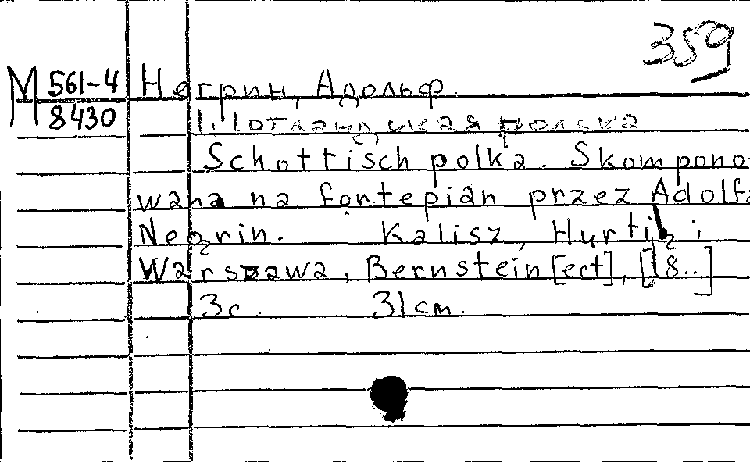 359
М 561-4 Негрин, Адольф.
8430 Шотландская полька
Schottisch polka. Skompono-
wana na fortepian przez Adolfa
Negrin. Kalisz, Hurtig i
Warszawa, Bernstein [ect], [18..]
3 с. 31 cm.